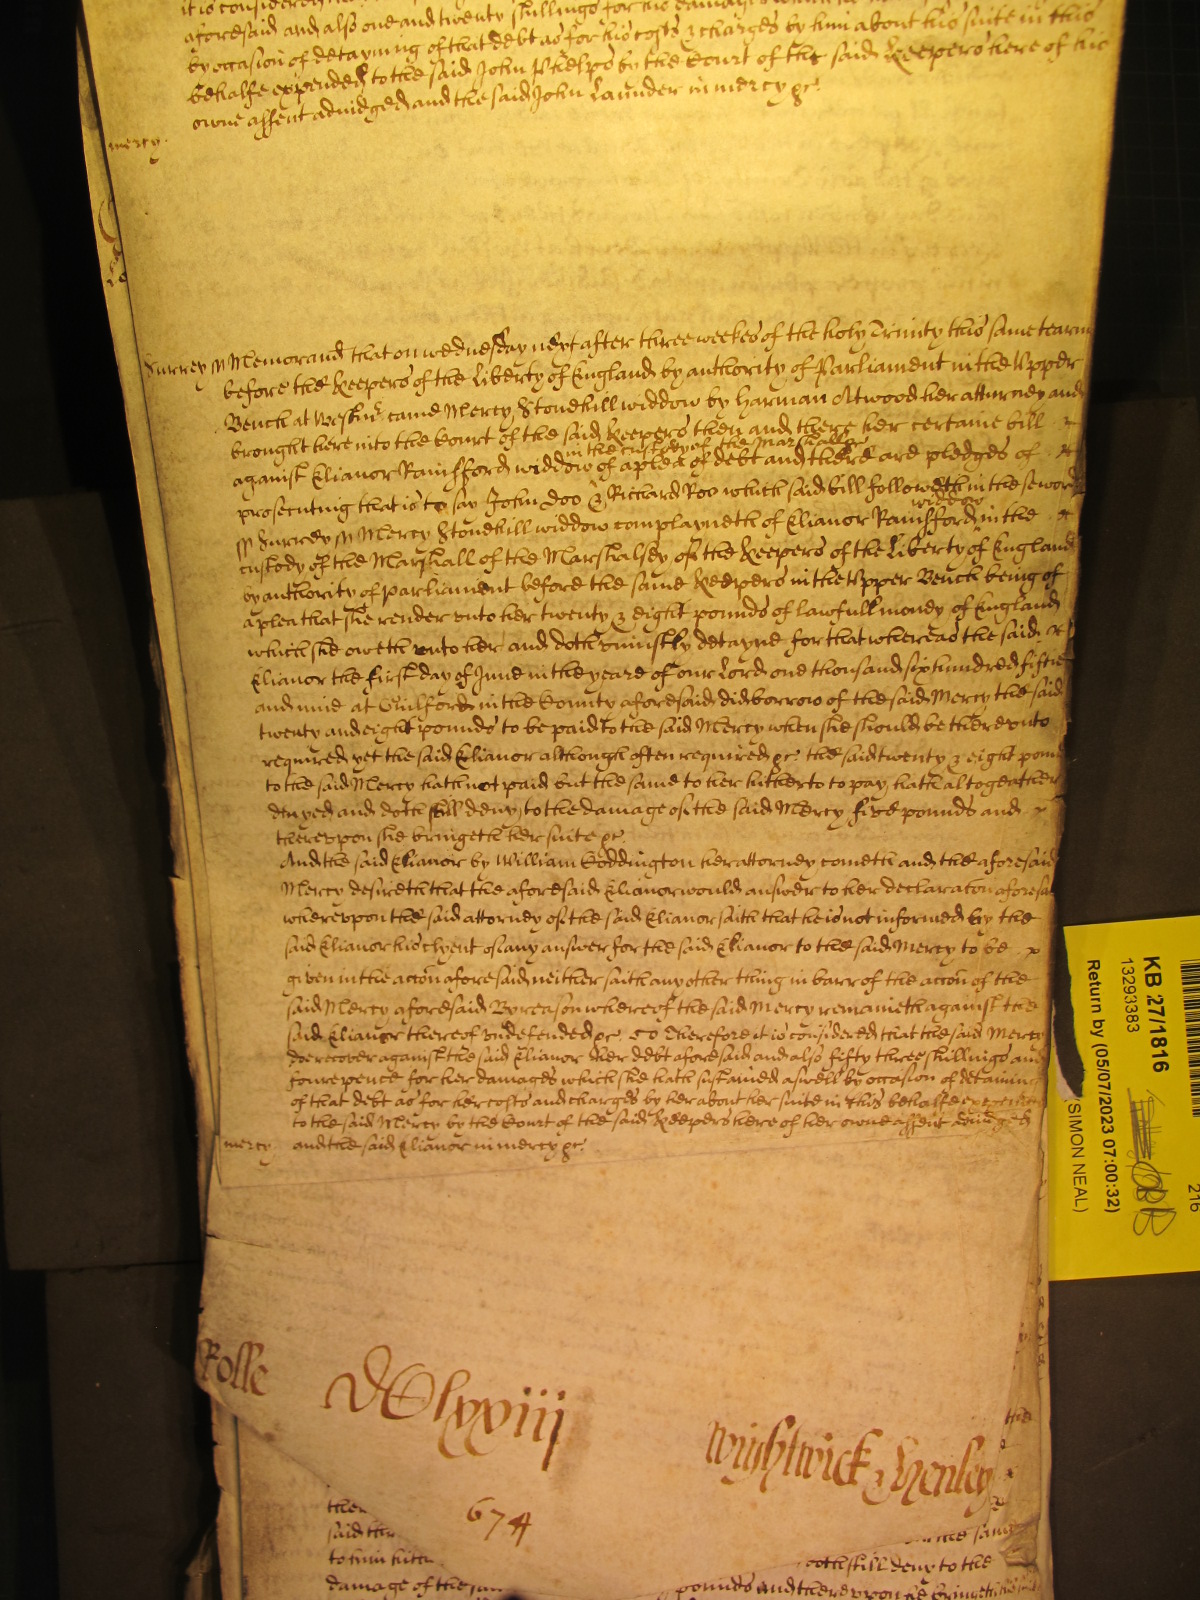 aforesaid and also one and twenty shillings for his damages which he
by occasion of detayning of that debt as for his costs & charges by him about his suite in this
behalfe expended to the said John Phelps by the Court of the said Keepers here of his
owne assent adiudged and the said John Launder in mercy &c
mercy
Surrey ss Memorand that on wednesday next after three weekes of the holy Trinity this same tearme
before the Keepers of the Liberty of England by authority of Parliament in the Vpper
Bench at Westmr came Mercy Stonehill widdow by Harman Atwood her atturney and
brought here into the Court of the said Keepers then and there her certaine bill
in the custody of the Marshall &c
against Elianor Rainsford widdow of a plea of debt and there are pledges of
prosecuting that is to say John Doo & Richard Roo which said bill followeth in these words
widdow
ss Surrey ss Mercy Stonehill widdow complayneth of Elianor Rainsford in the
custody of the Marshall of the Marshalsey of the Keepers of the Liberty of England
by authority of Parliament before the same Keepers in the Vpper Bench being of
a plea that she render vnto her twenty & eight pounds of lawfull money of England
which she oweth vnto her and doth vniustly detayne for that whereas the said
Elianor the first day of June in the yeare of our Lord one thousand six hundred fiftie
and nine at Guilford in the County aforesaid did borrow of the said Mercy the said
twenty and eight pounds to be paid to the said Mercy when she should be therevnto
required yet the said Elianor although often required &c the said twenty & eight pounds
to the said Mercy hath not paid but the same to her hitherto to pay hath altogeather
denyed and doth still deny to the damage of the said Mercy five pounds and
therevpon she bringeth her suite &c
And the said Elianor by William Eddington her attorney cometh and the aforesaid
Mercy desireth that the aforesaid Elianor would answer to her declaration aforesaid
wherevpon the said attorney of the said Elianor saith that he is not informed by the
said Elianor his clyent of any answer for the said Elianor to the said Mercy to be
given in the accon aforesaid neither saith any other thing in barr of the accon of the
said Mercy aforesaid By reason whereof the said Mercy remaineth against the
said Elianor thereof vndefended &c So Therefore it is considered that the said Mercy
doe recover against the said Elianor her debt aforesaid and also fifty three shillings and
fourepence for her damages which she hath sustained aswell by occasion of detaining
of that debt as for her costs and charges by her about her suite in this behalfe expended
to the said Mercy by the Court of the said Keepers here of her owne assent adiudged
mercy and the said Elianor in mercy &c
Rolle
DClxxiiij
Wightwick & Henley
674
said the
damage of the said
doth still deny to the
pounds and therevpon he bringeth his suite
KB 27/1816
13293383
Return by (05/07/2023 07:00:32)
(SIMON NEAL)
216